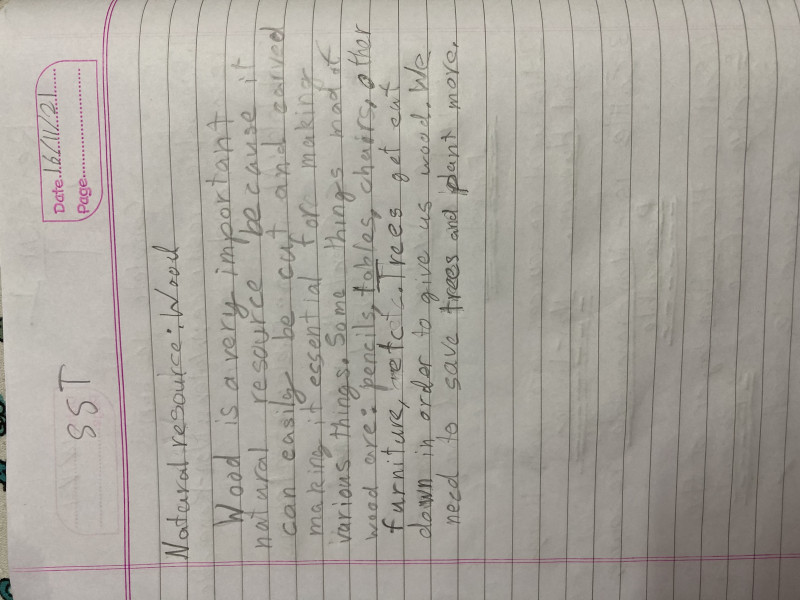 SST
Date. 16/11/21
Page.
Natural resource: Wood
Wood is a very important
natural resource because it
can easily be cut and carved
making it essential for making
various things. Some things mad of
wood are: pencils, tables, chairs, other
furniture, etc. Trees get cut
down in order to give us wood. We
need to save trees and plant more.